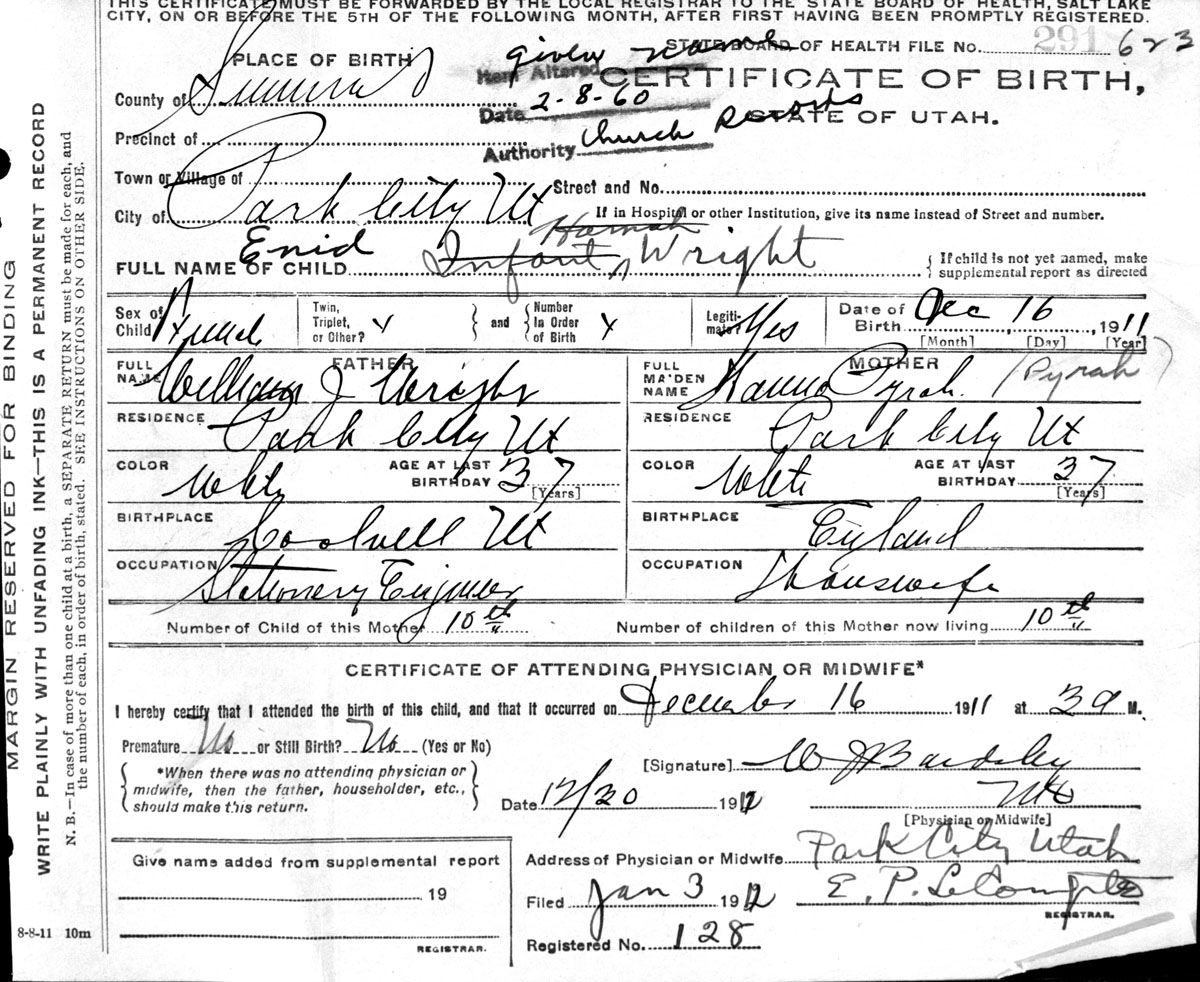 THIS CERTIFICATE MUST BE FORWARDED BY THE LOCAL REGISTRAR TO THE STATE BOARD OF HEALTH, SALT LAKE
CITY, ON OR BEFORE THE 5TH OF THE FOLLOWING MONTH, AFTER FIRST HAVING BEEN PROMPTLY REGISTERED.
STATE BOARD OF HEALTH FILE No. 291 623
PLACE OF BIRTH
given name
Item Altered
CERTIFICATE OF BIRTH,
County of Summit
Date 2-8-60
STATE OF UTAH.
Precinct of
Authority Church Records
Town or Village of
Street and No.
City of Park City Ut
If in Hospital or other Institution, give its name instead of Street and number.
Enid Hannah
FULL NAME OF CHILD Infant Wright
If child is not yet named, make
supplemental report as directed
Sex of Child
Twin, Triplet, or Other? x
and
Number In Order of Birth x
Legitimate? Yes
Date of Birth Dec 16, 1911
[Month] [Day] [Year]
FATHER
FULL NAME William J Wright
MOTHER
FULL MAIDEN NAME Hanna Pyrah (Pyrah)
RESIDENCE Park City Ut
RESIDENCE Park City Ut
COLOR White AGE AT LAST BIRTHDAY 37 [Years]
COLOR White AGE AT LAST BIRTHDAY 37 [Years]
BIRTHPLACE Coalvell Ut
BIRTHPLACE England
OCCUPATION Stationery Engineer
OCCUPATION Housewife
Number of Child of this Mother 10th
Number of children of this Mother now living 10th
CERTIFICATE OF ATTENDING PHYSICIAN OR MIDWIFE*
I hereby certify that I attended the birth of this child, and that it occurred on December 16 1911 at 3 a M.
Premature No or Still Birth? No (Yes or No)
*When there was no attending physician or
midwife, then the father, householder, etc.,
should make this return.
[Signature] W J Bardsley
MD
Date 12/20 1912
[Physician or Midwife]
Give name added from supplemental report
19
REGISTRAR.
Address of Physician or Midwife Park City Utah
Filed Jan 3 1912 E. P. LeCompte
REGISTRAR.
Registered No. 128
8-8-11 10m
MARGIN RESERVED FOR BINDING
WRITE PLAINLY WITH UNFADING INK—THIS IS A PERMANENT RECORD
N. B.—In case of more than one child at a birth, a SEPARATE RETURN must be made for each, and
the number of each, in order of birth, stated. SEE INSTRUCTIONS ON OTHER SIDE.